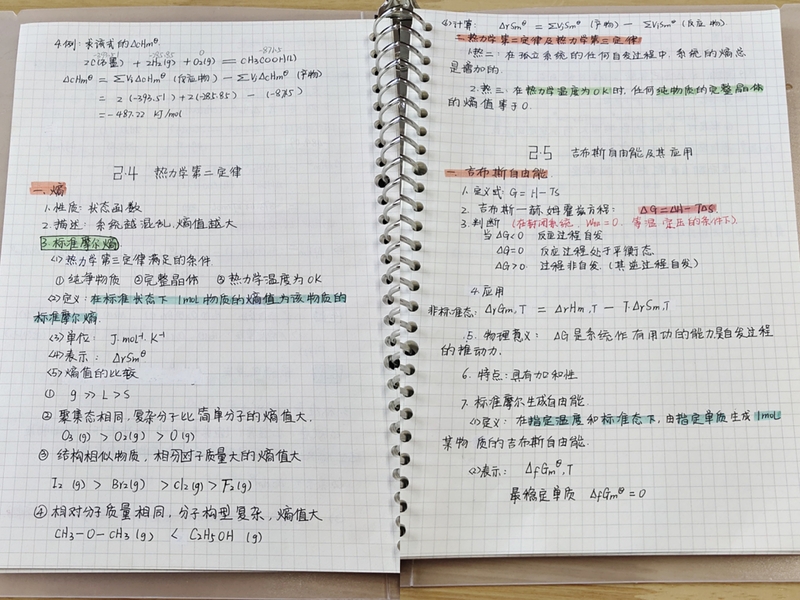 4.例: 求该式的ΔcHmθ.
-393.51 -285.85 0 -871.5
2C(石墨) + 2H2(g) + O2(g) = CH3COOH(l)
ΔcHmθ = ΣViΔcHmθ (反应物) - ΣViΔcHmθ (产物)
= 2(-393.51)+2(-285.85) - (-871.5)
= -487.22 KJ/mol
2.4 热力学第二定律
一. 熵
1. 性质: 状态函数
2. 描述: 系统越混乱, 熵值越大
3. 标准摩尔熵
(1) 热力学第三定律满足的条件
①纯净物质 ②完整晶体 ③热力学温度为0K
(2) 定义: 在标准状态下 1mol物质的熵值为该物质的
标准摩尔熵.
(3) 单位: J·mol⁻¹·K⁻¹
(4) 表示: ΔrSmθ
(5) 熵值的比较
① g >> L > S
② 聚集态相同, 复杂分子比简单分子的熵值大.
O3(g) > O2(g) > O(g)
③ 结构相似物质, 相对分子质量大的熵值大
I2(g) > Br2(g) > Cl2(g) > F2(g)
④ 相对分子质量相同, 分子构型复杂, 熵值大
CH3-O-CH3(g) < C2H5OH (g)
(6)计算: ΔrSmθ = ΣViSmθ (产物) - ΣViSmθ (反应物)
二. 热力学第二定律及热力学第三定律
1.热二: 在孤立系统的任何自发过程中, 系统的熵总
是增加的.
2.热三: 在热力学温度为0K时, 任何纯物质的完整晶体
的熵值等于0.
2.5 吉布斯自由能及其应用
一. 吉布斯自由能
1. 定义式: G = H-TS
2. 吉布斯-赫姆霍兹方程: ΔG=ΔH-TΔS
3. 判断 (在封闭系统、W非=0、等温定压的条件下).
当ΔG<0 反应过程自发
ΔG=0 反应过程处于平衡态
ΔG>0 过程非自发 (其逆过程自发)
4. 应用
非标准态: ΔrGm,T = ΔrHm,T - T·ΔrSm,T
5. 物理意义: ΔG是系统作有用功的能力是自发过程
的推动力.
6. 特点: 具有加和性
7. 标准摩尔生成自由能.
(1)定义: 在指定温度和标准态下, 由指定单质生成1mol
某物质的吉布斯自由能.
(2)表示: ΔfGmθ,T
最稳定单质 ΔfGmθ = 0